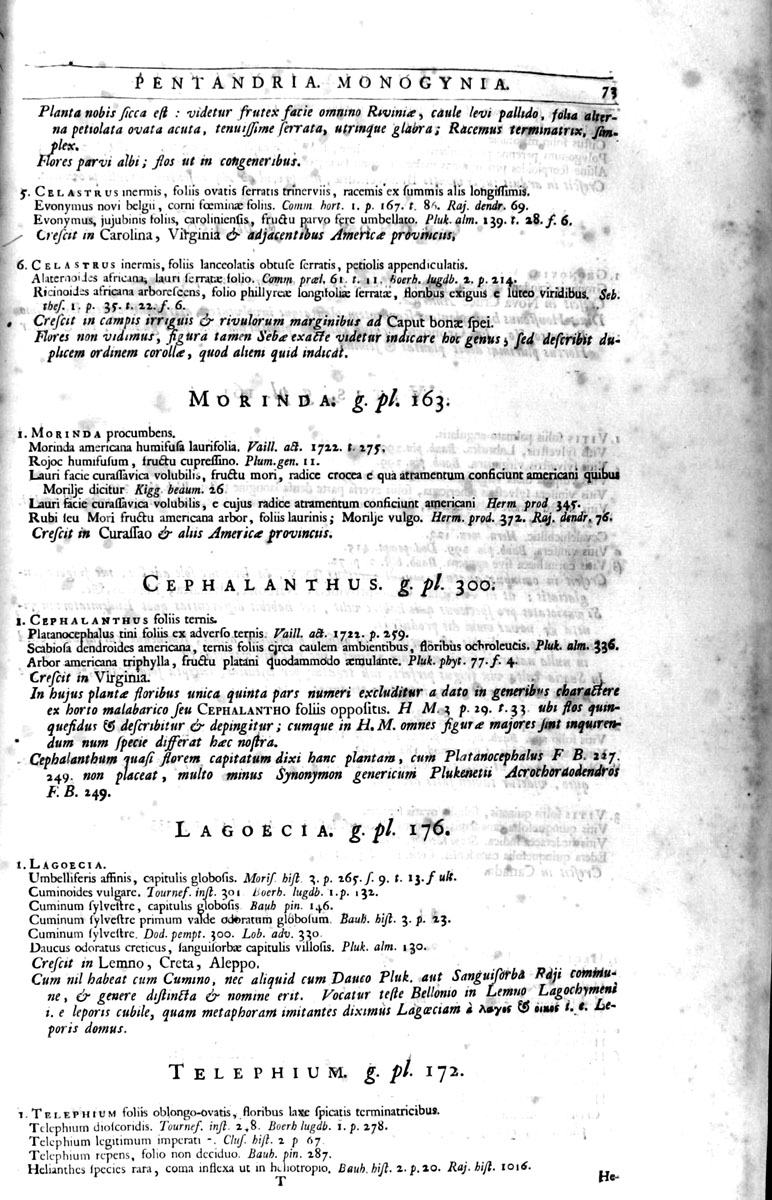 PENTANDRIA. MONOGYNIA. 73
Planta nobis ſicca eſt : videtur frutex facie omnino Riviniæ, caule levi pallido, folia alter-
na petiolata ovata acuta, tenuiſſime ſerrata, utrinque glabra; Racemus terminatrix, ſim-
plex.
Flores parvi albi; flos ut in congeneribus.
5. CELASTRUS inermis, foliis ovatis ſerratis trinerviis, racemis ex ſummis alis longiſſimis.
Evonymus novi belgii, corni fœminæ foliis. Comm. hort. 1. p. 167. t. 86. Raj. dendr. 69.
Evonymus, jujubinis foliis, carolinienſis, fructu parvo fere umbellato. Pluk. alm. 139. t. 28. f. 6.
Creſcit in Carolina, Virginia & adjacentibus Americæ provinciis.
6. CELASTRUS inermis, foliis lanceolatis obtuſe ſerratis, petiolis appendiculatis.
Alaternoides africana, lauri ſerratæ folio. Comm. præl. 61. t. 11. Boerh. lugdb. 2. p. 214.
Ricinoides africana arboreſcens, folio phillyreæ longifoliæ ſerratæ, floribus exiguis e luteo viridibus. Seb.
theſ. 1. p. 35. t. 22. f. 6.
Creſcit in campis irriguis & rivulorum marginibus ad Caput bonæ ſpei.
Flores non vidimus, figura tamen Sebæ exacte videtur indicare hoc genus, ſed deſcribit du-
plicem ordinem corollæ, quod alieni quid indicat.
MORINDA. g. pl. 163.
1. MORINDA procumbens.
Morinda americana humifuſa laurifolia. Vaill. act. 1722. t. 275.
Rojoc humifuſum, fructu cupreſſino. Plum. gen. 11.
Lauri facie curaſſavica volubilis, fructu mori, radice crocea e qua atramentum conficiunt americani quibus
Morilje dicitur. Kigg. beaum. 26.
Lauri facie curaſſavica volubilis, e cujus radice atramentum conficiunt americani Herm prod 345.
Rubi ſeu Mori fructu americana arbor, foliis laurinis; Morilje vulgo. Herm. prod. 372. Raj. dendr. 76.
Creſcit in Curaſſao & aliis Americæ provinciis.
CEPHALANTHUS. g. pl. 300.
1. CEPHALANTHUS foliis ternis.
Platanocephalus tini foliis ex adverſo ternis. Vaill. act. 1722. p. 259.
Scabioſa dendroides americana, ternis foliis circa caulem ambientibus, floribus ochroleucis. Pluk. alm. 336.
Arbor americana triphylla, fructu platani quodammodo æmulante. Pluk. phyt. 77. f. 4.
Creſcit in Virginia.
In hujus plantæ floribus unica quinta pars numeri excluditur a dato in generibus charactere
ex horto malabarico ſeu CEPHALANTHO foliis oppoſitis. H M. 3 p. 29. t. 33 ubi flos quin-
quefidus & deſcribitur & depingitur; cumque in H. M. omnes figuræ majores ſint inquiren-
dum num ſpecie differat hæc noſtra.
Cephalanthum quaſi florem capitatum dixi hanc plantam, cum Platanocephalus F B. 227.
249. non placeat, multo minus Synonymon genericum Plukenetii Acrochoraodendros
F. B. 249.
LAGOECIA. g. pl. 176.
1. LAGOECIA.
Umbelliferis affinis, capitulis globoſis. Moriſ. hiſt 3. p. 265. ſ. 9. t. 13. f ult.
Cuminoides vulgare. Tournef. inſt. 301 Boerh. lugdb. 1. p. 132.
Cuminum ſylveſtre, capitulis globoſis Bauh pin. 146.
Cuminum ſylveſtre primum valde odoratum globoſum. Bauh. hiſt. 3. p. 23.
Cuminum ſylveſtre. Dod. pempt. 300. Lob. adv. 330
Daucus odoratus creticus, ſanguiſorbæ capitulis villoſis. Pluk. alm. 130.
Creſcit in Lemno, Creta, Aleppo.
Cum nil habeat cum Cumino, nec aliquid cum Dauco Pluk. aut Sanguiſorba Raji commu-
ne, & genere diſtincta & nomine erit. Vocatur teſte Bellonio in Lemno Lagochymeni
i. e leporis cubile, quam metaphoram imitantes diximus Lagœciam à λαγος & οικος i. e. Le-
poris domus.
TELEPHIUM. g. pl. 172.
1. TELEPHIUM foliis oblongo-ovatis, floribus laxe ſpicatis terminatricibus.
Telephium dioſcoridis. Tournef. inſt. 248. Boerh lugdb. 1. p. 278.
Telephium legitimum imperati. Cluſ. hiſt. 2 p 67.
Telephium repens, folio non deciduo. Bauh. pin. 287.
Helianthes ſpecies rara, coma inflexa ut in heliotropio. Bauh. hiſt. 2. p. 20. Raj. hiſt. 1016.
T He-